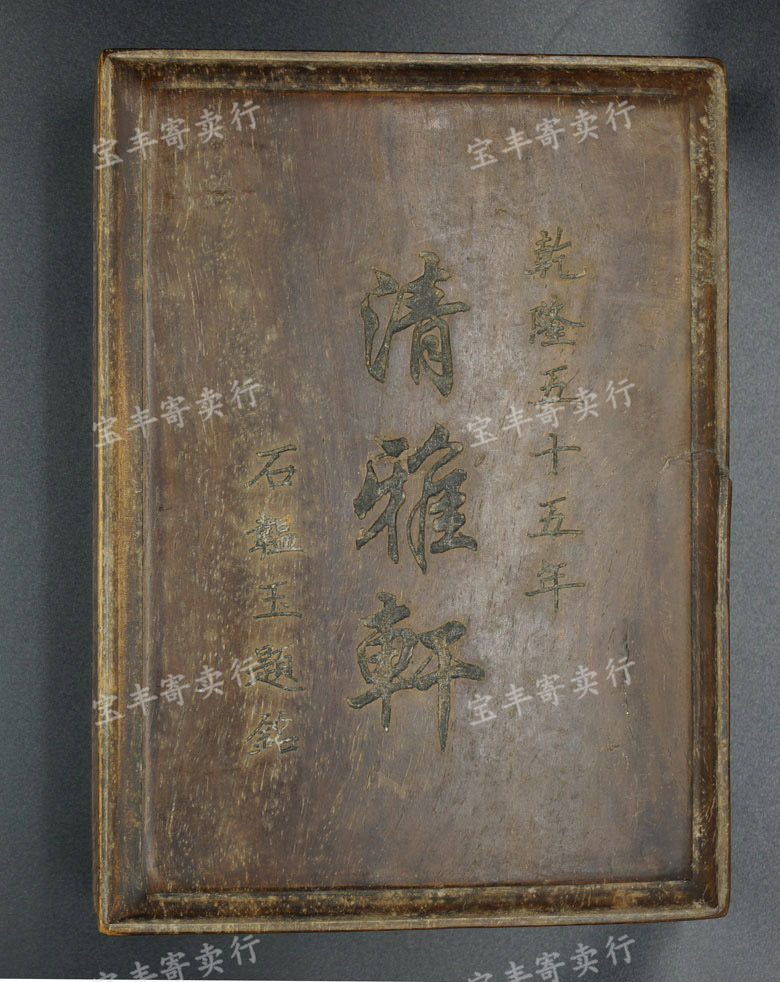 乾隆五十五年
清雅軒
石韞玉題銘
宝丰寄卖行
宝丰寄卖行
宝丰寄卖行
宝丰寄卖行
宝丰寄卖行
宝丰寄卖行
宝丰寄卖行
宝丰寄卖行